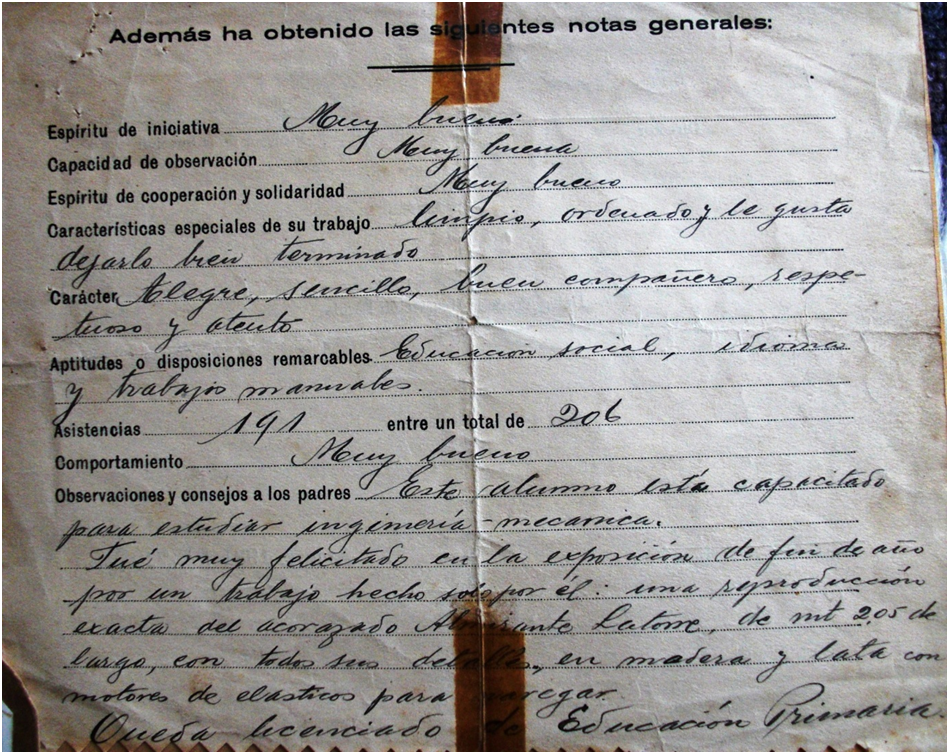 Además ha obtenido las siguientes notas generales:
Espíritu de iniciativa Muy bueno
Capacidad de observación Muy buena
Espíritu de cooperación y solidaridad Muy bueno
Características especiales de su trabajo limpio, ordenado y le gusta
dejarlo bien terminado
Carácter Alegre, sencillo, buen compañero, respe-
tuoso y atento
Aptitudes o disposiciones remarcables Educación social, idioma
y trabajos manuales.
Asistencias 191 entre un total de 206
Comportamiento Muy bueno
Observaciones y consejos a los padres Este alumno está capacitado
para estudiar ingimería-mecanica.
Fué muy felicitado en la exposición de fin de año
por un trabajo hecho sólo por él: una reproducción
exacta del acorazado Almirante Latorre, de mt 2,05 de
largo, con todos sus detalles, en madera y lata con
motores de elasticos para navegar.
Queda licenciado de Educación Primaria.